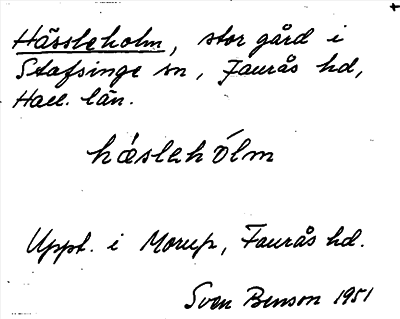 Hässleholm, stor gård i
Stafsinge sn, Faurås hd,
Hall. län.
hǽslehólm
Uppt. i Morup, Faurås hd.
Sven Benson 1951